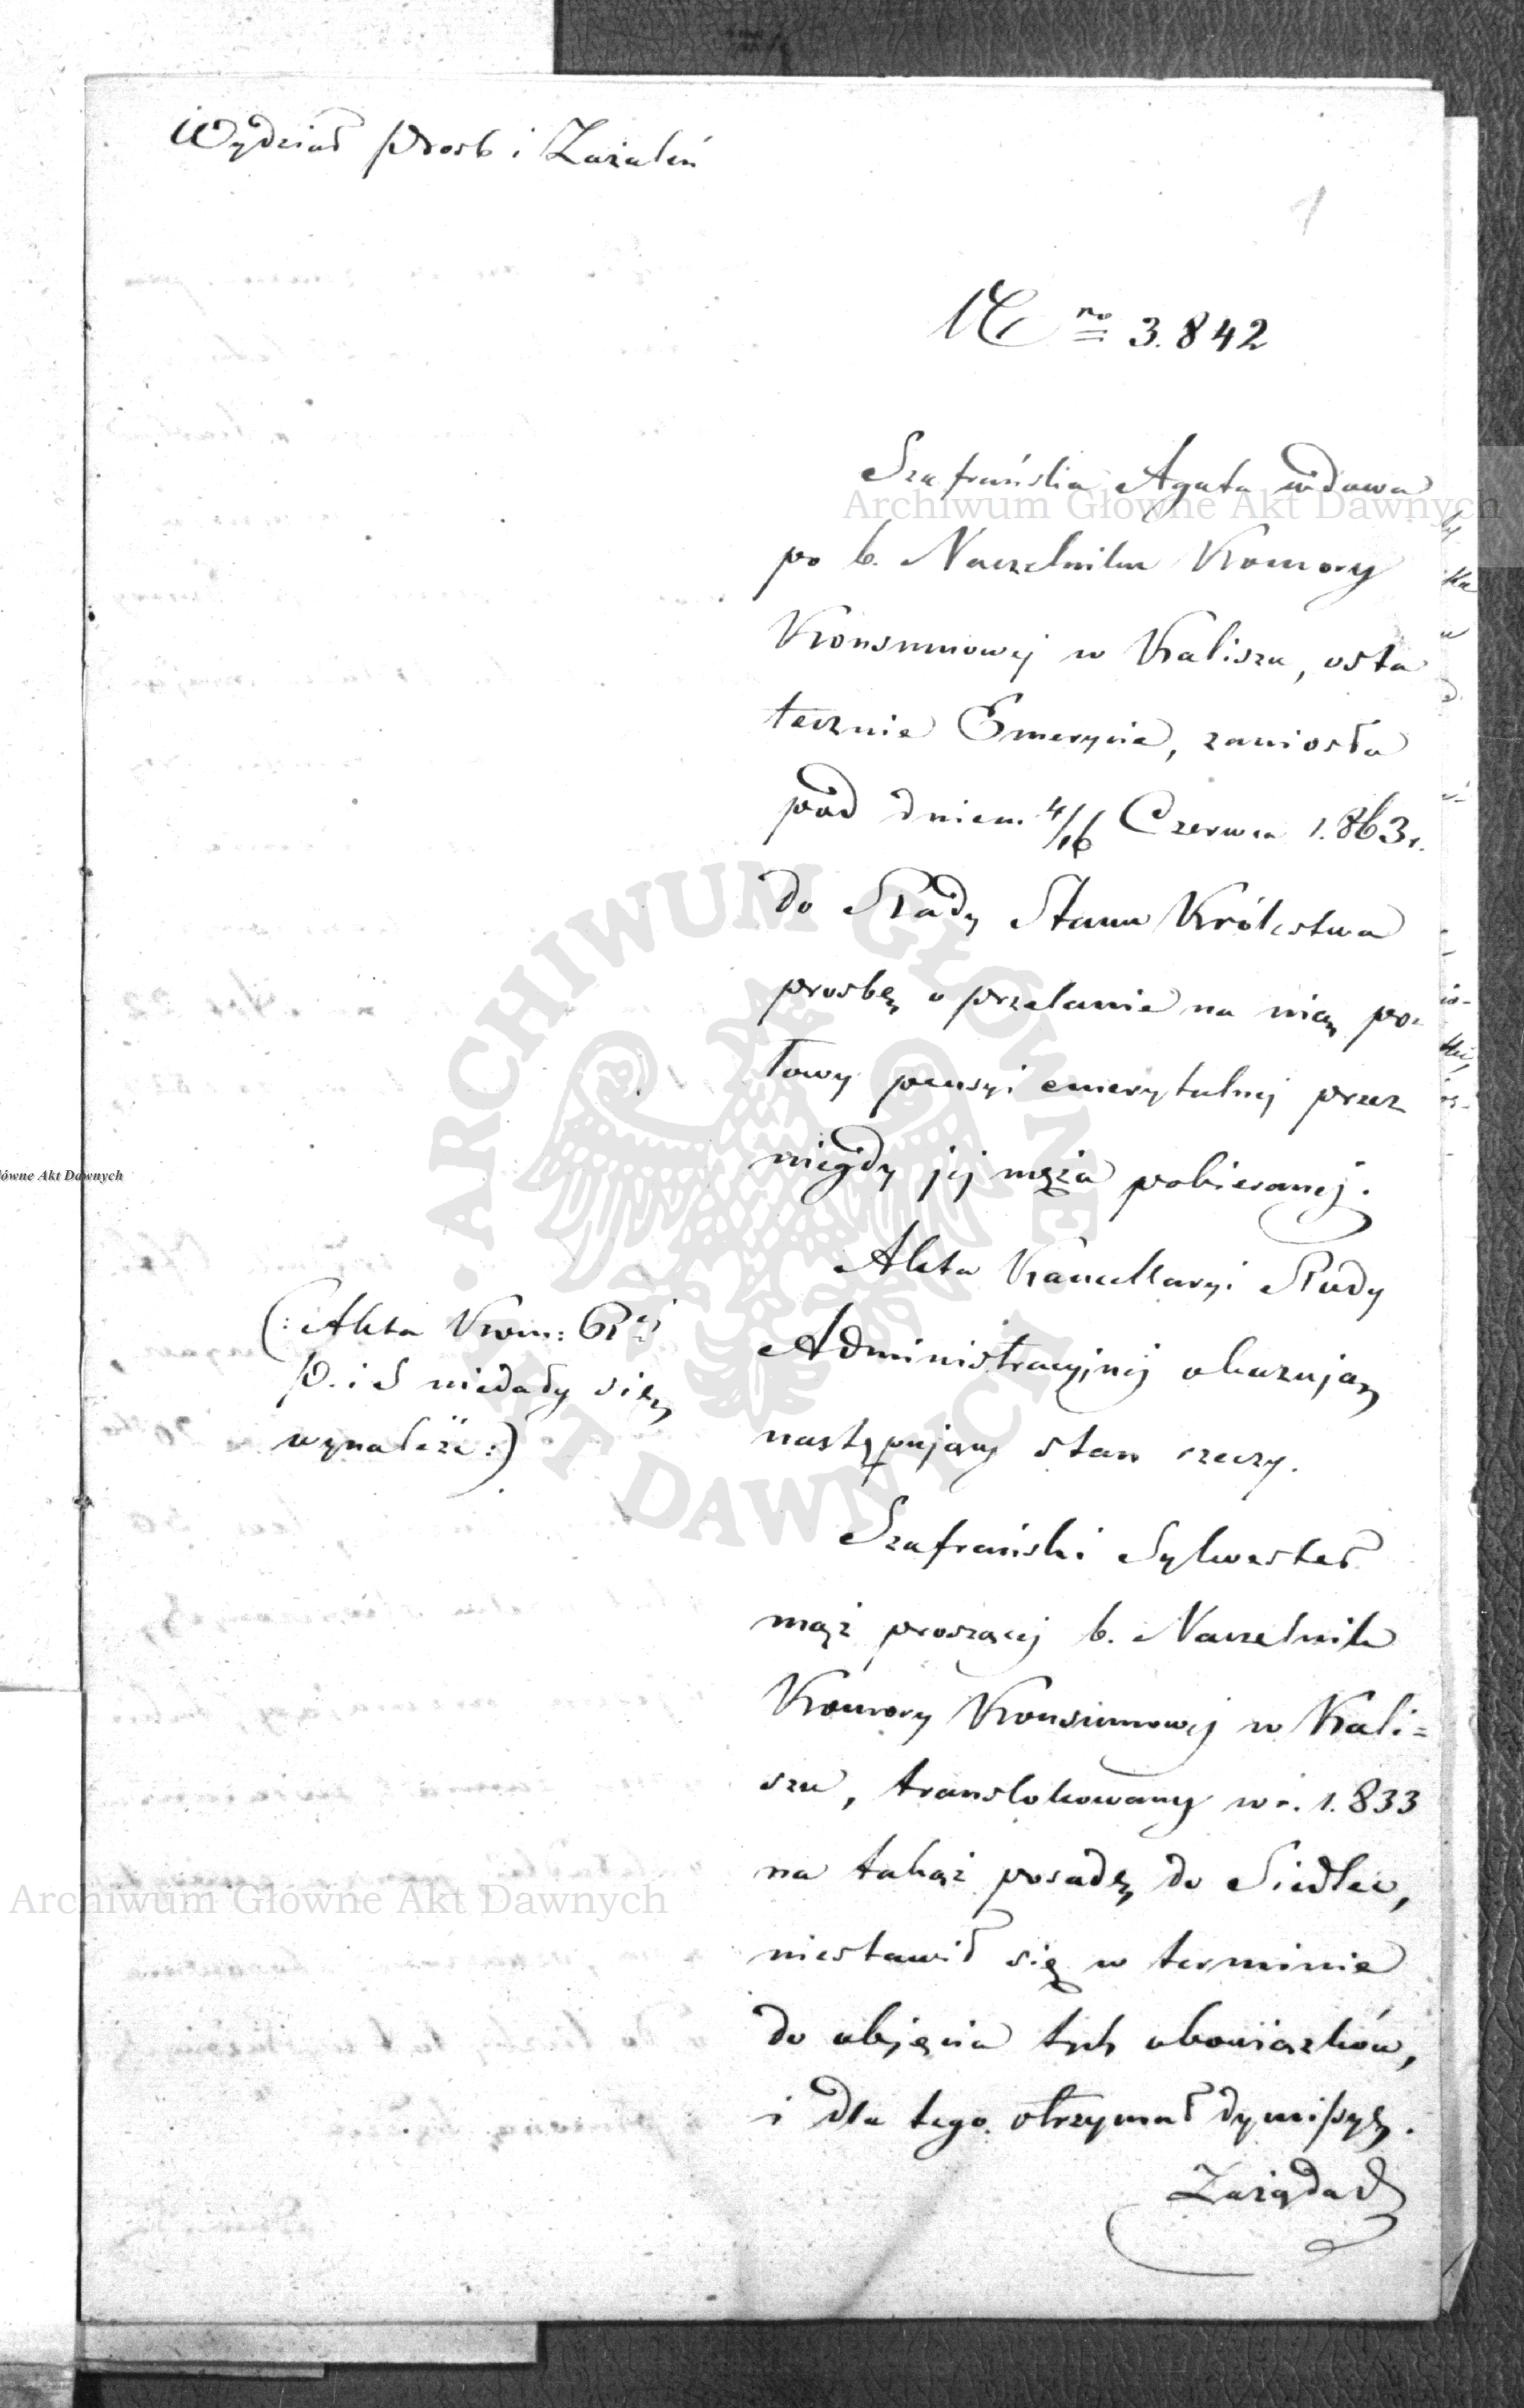 Wydział Prosb i Zażaleń
1
N no 3.842
Szafrańska Agata wdowa
po b. Naczelniku Komory
Konsumowej w Kaliszu, osta
tecznie Emerycie, zaniosła
pod dniem 4/16 Czerwca 1.863 r.
do Rady Stanu Królestwa
prosbę o przelanie na nią po-
łowy pensyi emerytalnej przez
niegdy jej męża pobieranej.
Akta Kancellaryi Rady
Administracyjnej okazują
następujący stan rzeczy.
(: Akta Kom: Rej
P. i S niedały się
wynaleźć :)
Szafrański Sylwester
mąż proszącej b. Naczelnik
Komory Konsumowej w Kali=
szu, translokowany w r. 1.833
na takąż posadę do Siedlec,
niestawił się w terminie
do objęcia tych obowiązków,
i dla tego otrzymał dymissyę.
Zażądał
Archiwum Głowne Akt Dawnych
ARCHIWUM GŁÓWNE AKT DAWNYCH
łówne Akt Dawnych
Archiwum Głowne Akt Dawnych